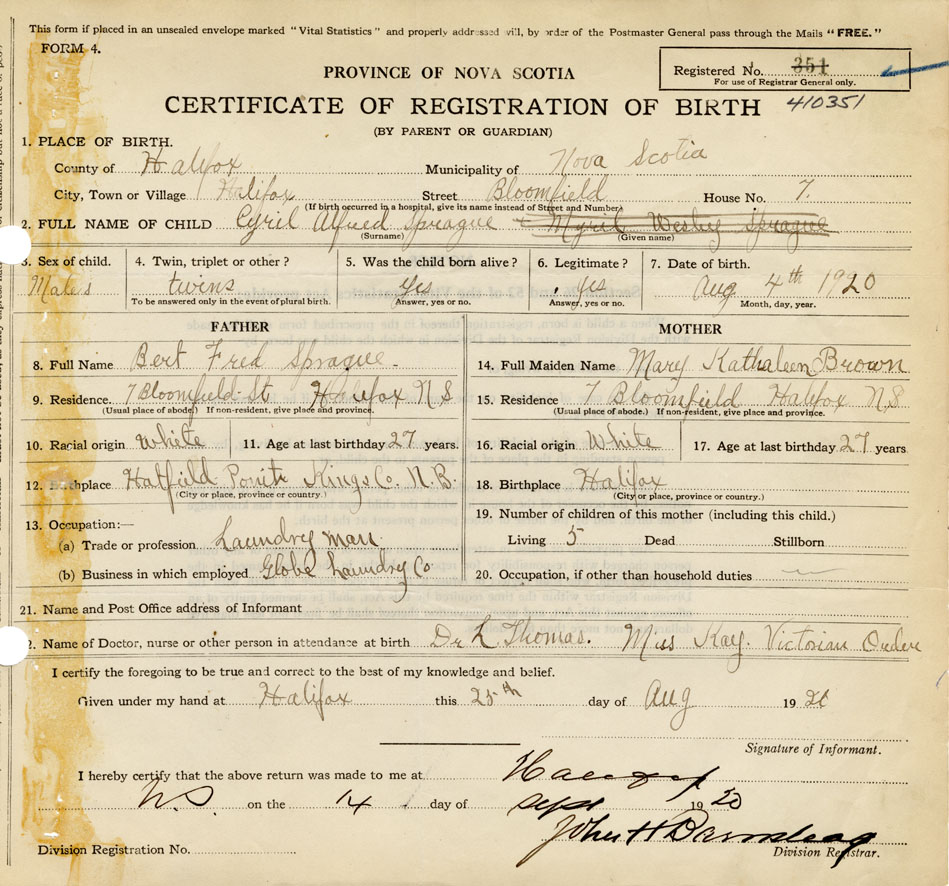 This form if placed in an unsealed envelope marked "Vital Statistics" and properly addressed will, by order of the Postmaster General pass through the Mails "FREE."
FORM 4.
PROVINCE OF NOVA SCOTIA
Registered No. 351
For use of Registrar General only.
CERTIFICATE OF REGISTRATION OF BIRTH 410351
(BY PARENT OR GUARDIAN)
1. PLACE OF BIRTH.
County of Halifax Municipality of Nova Scotia
City, Town or Village Halifax Street Bloomfield House No. 7.
(If birth occurred in a hospital, give its name instead of Street and Number)
2. FULL NAME OF CHILD Cyril Alfred Sprague & Myril Wesley Sprague
(Surname) (Given name)
3. Sex of child. 4. Twin, triplet or other? 5. Was the child born alive? 6. Legitimate? 7. Date of birth.
Males twins yes yes Aug 4th 1920
To be answered only in the event of plural birth. Answer, yes or no. Answer, yes or no. Month, day, year.
FATHER MOTHER
8. Full Name Bert Fred Sprague 14. Full Maiden Name Mary Kathaleen Brown
9. Residence. 7 Bloomfield St Halifax N S 15. Residence 7 Bloomfield Halifax N.S
(Usual place of abode) If non-resident, give place and province. (Usual place of abode.) If non-resident, give place and province.
10. Racial origin White 11. Age at last birthday 27 years. 16. Racial origin White 17. Age at last birthday 27 years
12. Birthplace Hatfield Point Kings Co. N.B. 18. Birthplace Halifax
(City or place, province or country.) (City or place, province or country.)
13. Occupation:— 19. Number of children of this mother (including this child.)
(a) Trade or profession Laundry man Living 5 Dead Stillborn
(b) Business in which employed Globe Laundry Co 20. Occupation, if other than household duties
21. Name and Post Office address of Informant
2. Name of Doctor, nurse or other person in attendance at birth Dr L Thomas. Miss Kay. Victorian Order
I certify the foregoing to be true and correct to the best of my knowledge and belief.
Given under my hand at Halifax this 25th day of Aug 1920
Signature of Informant.
I hereby certify that the above return was made to me at
N.S on the 14 day of Sept 1920
John H
Division Registration No. Division Registrar.